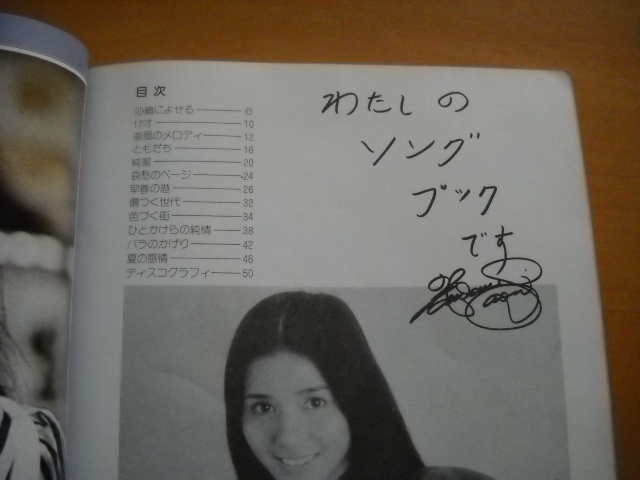 目次
沙織によせる 6
17才 10
潮風のメロディ 12
ともだち 16
純潔 20
哀愁のページ 24
早春の港 26
傷つく世代 32
色づく街 34
ひとかけらの純情 38
バラのかげり 42
夏の感情 46
ディスコグラフィ 50
わたしの
ソング
ブック
です